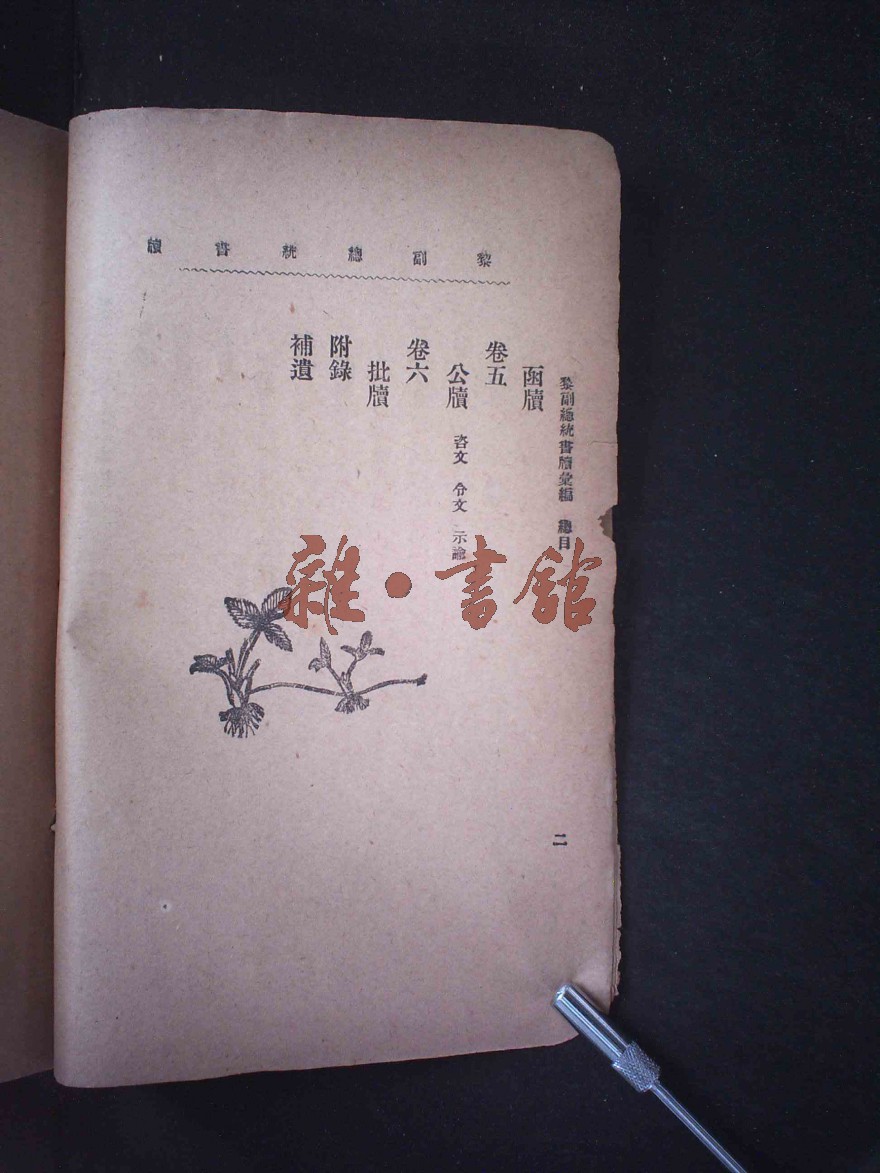 黎副總統書牘
黎副總統書牘彙編 總目
函牘
卷五
公牘 咨文 令文 示諭
卷六
批牘
附錄
補遺
二
雜·書館